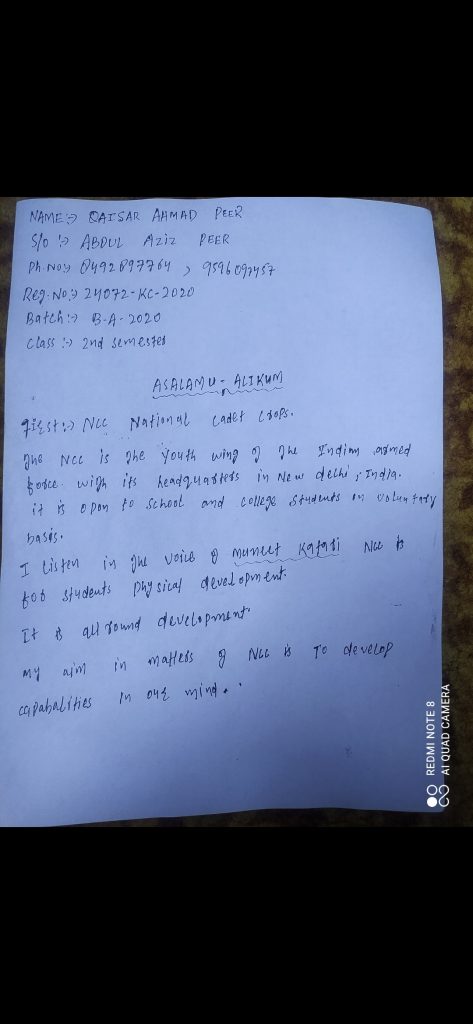 NAME:→ QAISAR AHMAD PEER
S/o :→ ABDUL AZIZ PEER
Ph.No:→ 8492897764 , 9596092457
Reg.No:→ 24072-KC-2020
Batch:→ B-A-2020
Class :→ 2nd semester
ASALAMU-ALIKUM
First:→ NCC National Cadet Crops.
The NCC is the Youth wing of the Indian armed
force with its headquarters in New delhi, India.
it is open to school and college students on voluntary
basis.
I listen in the voice of Muneet NCC is
for students physical development.
It is all round development.
my aim in matters of NCC is To develop
capabalities in our mind.
REDMI NOTE 8
AI QUAD CAMERA